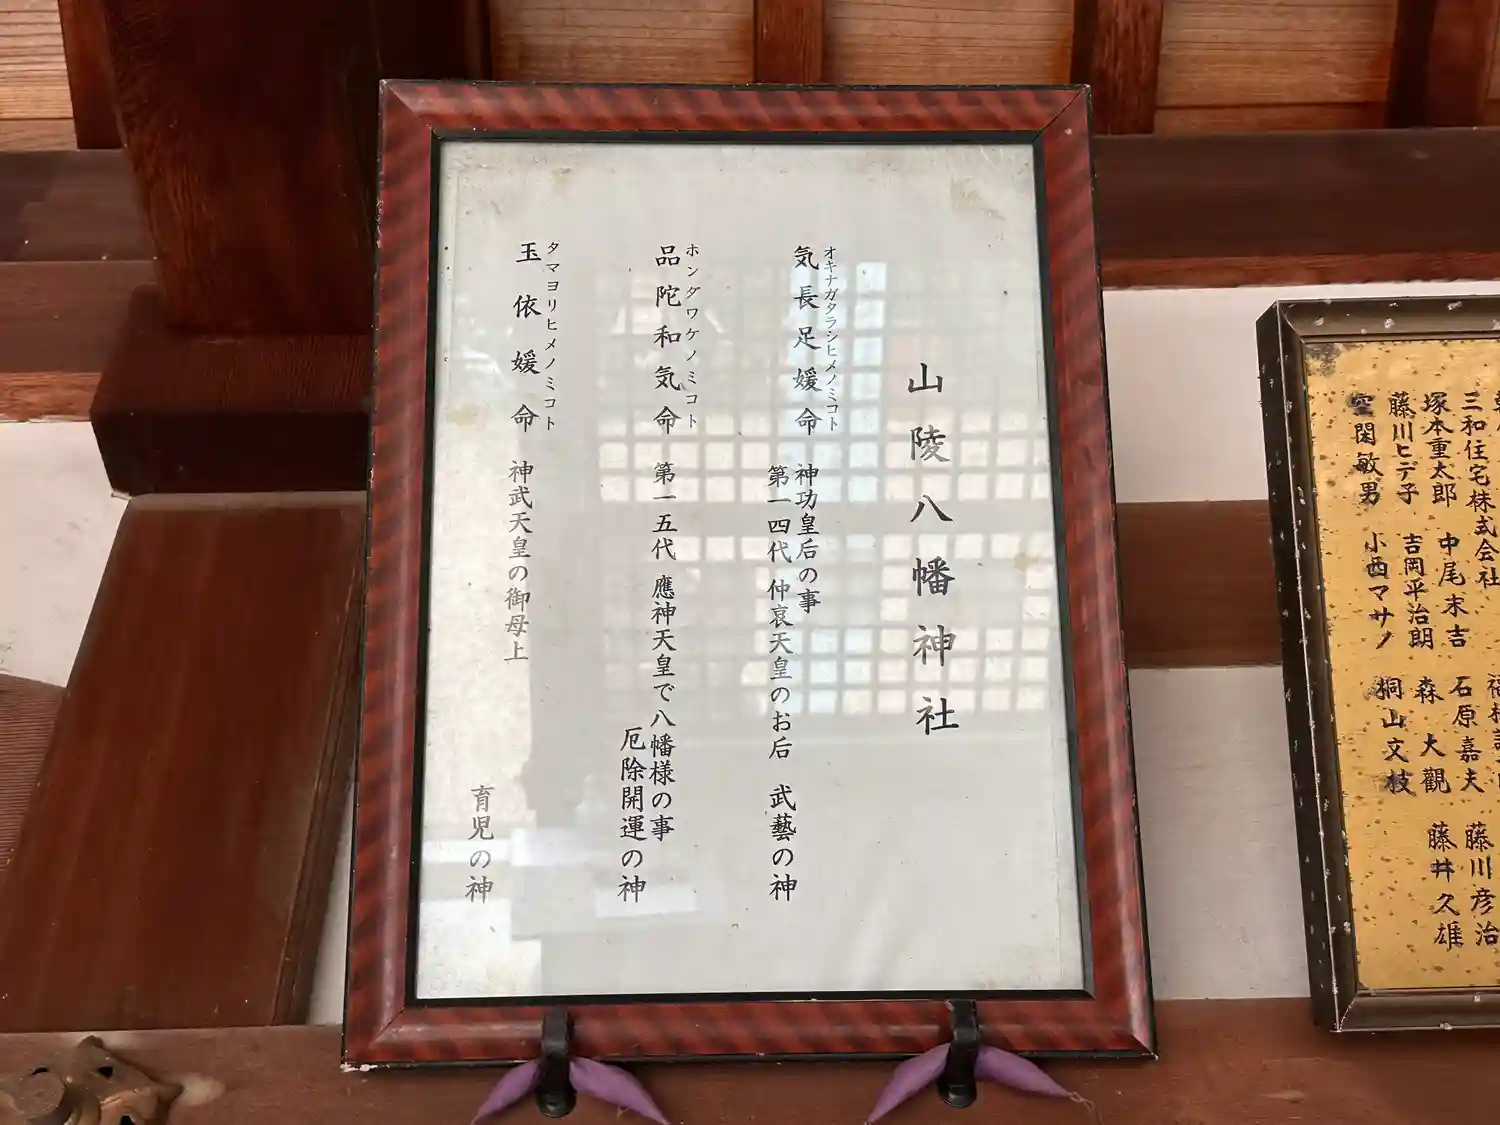 山陵八幡神社
オキナガタラシヒメノミコト
気長足媛命
神功皇后の事
第一四代 仲哀天皇のお后 武藝の神
ホンダワケノミコト
品陀和気命
第一五代 應神天皇で八幡様の事
厄除開運の神
タマヨリヒメノミコト
玉依媛命
神武天皇の御母上
育児の神
三和住宅株式会社
石原嘉夫
藤川彦治
塚本重太郎
中尾末吉
森大觀
藤井久雄
藤川ヒデ子
吉岡平治朗
桐山文枝
空閑敏男
小西マサノ